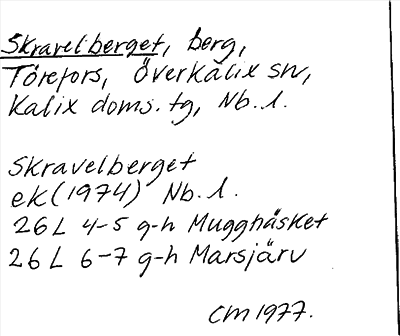 Skravelberget, berg,
Törefors, Överkalix sn,
Kalix doms. tg, Nb. l.
Skravelberget
ek (1974) Nb. l.
26L 4-5 g-h Muggnäsket
26L 6-7 g-h Marsjärv
CM 1977.